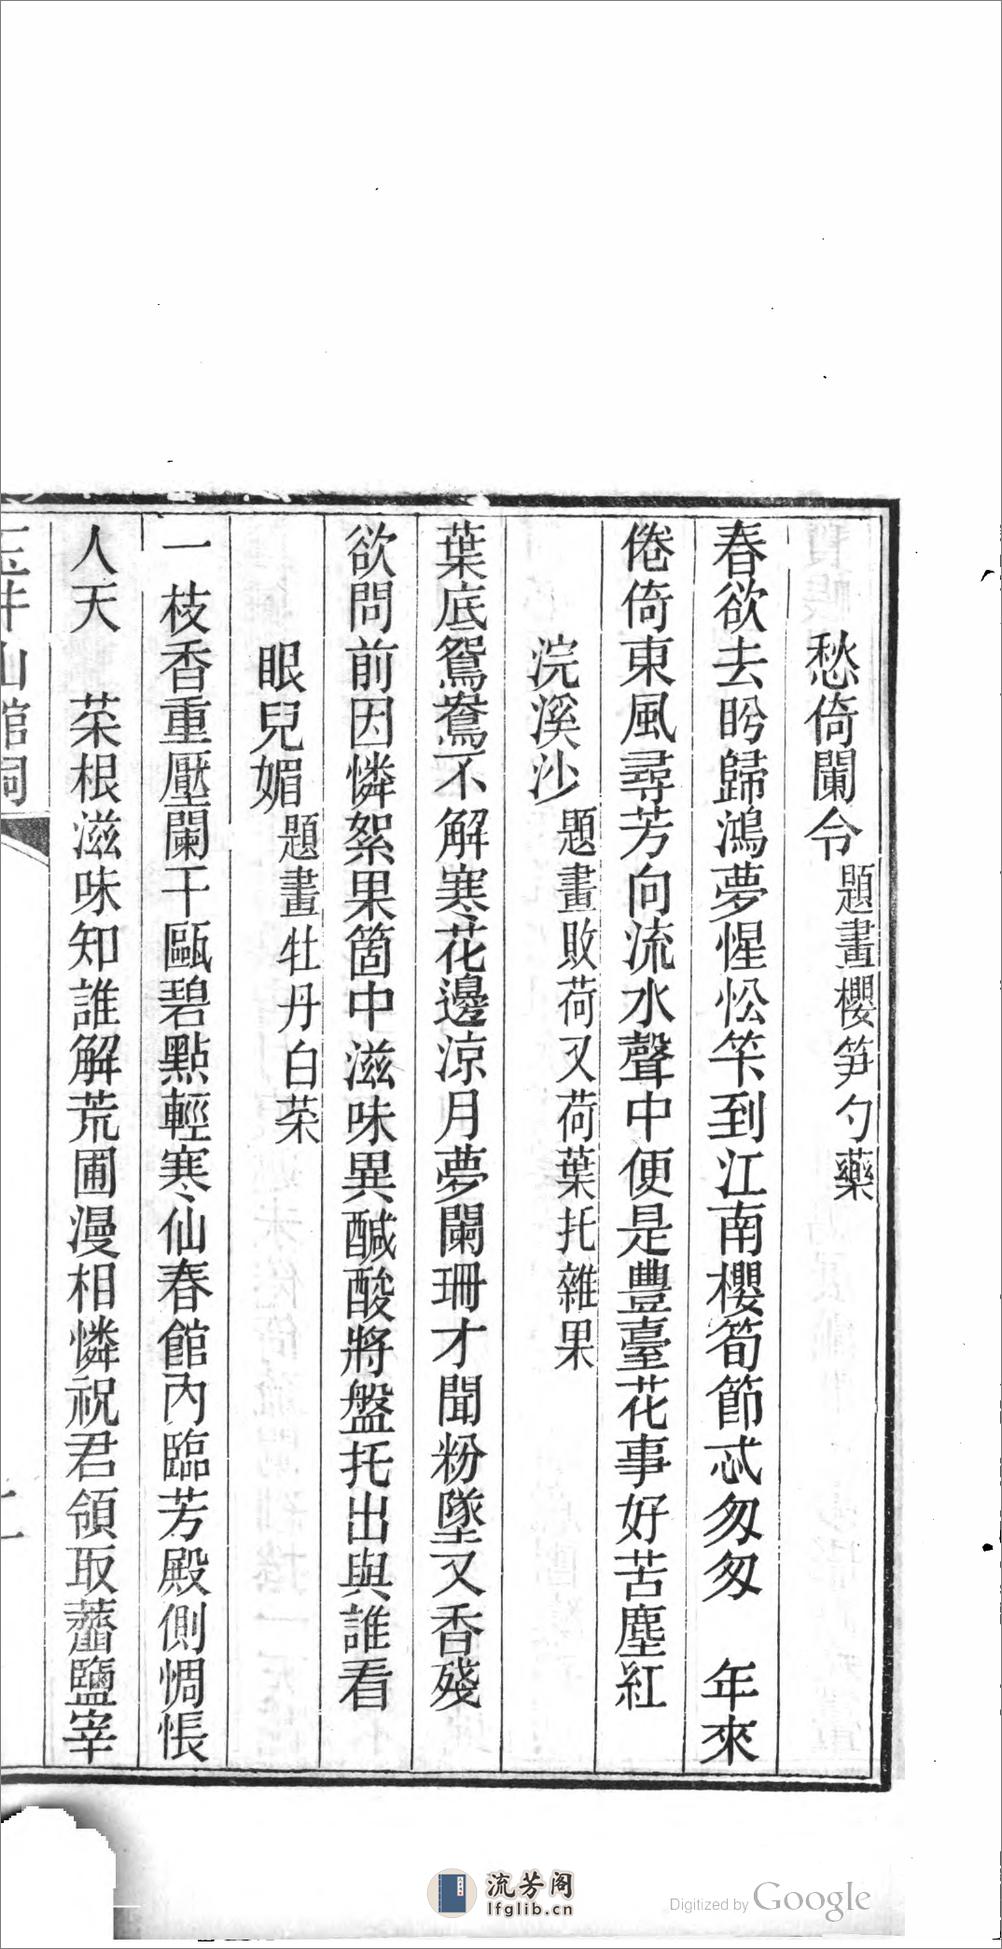 愁倚闌令題畫櫻笋勺藥
春欲去盻歸鴻夢惺忪笇到江南櫻筍節忒匆匆　年來
倦倚東風尋芳向流水聲中便是豐臺花事好苦塵紅
浣溪沙題畫敗荷又荷葉托雜果
葉底鴛鴦不解寒花邊涼月夢闌珊才聞粉墜又香殘
欲問前因憐絮果箇中滋味異醎酸將盤托出與誰看
眼兒媚題畫牡丹白菜
一枝香重壓闌干甌碧點輕寒仙春館內臨芳殿側惆悵
人天　菜根滋味知誰解荒圃漫相憐祝君領取虀鹽宰
玉井山館詞
流芳阁
lfglib.cn
Digitized by Google